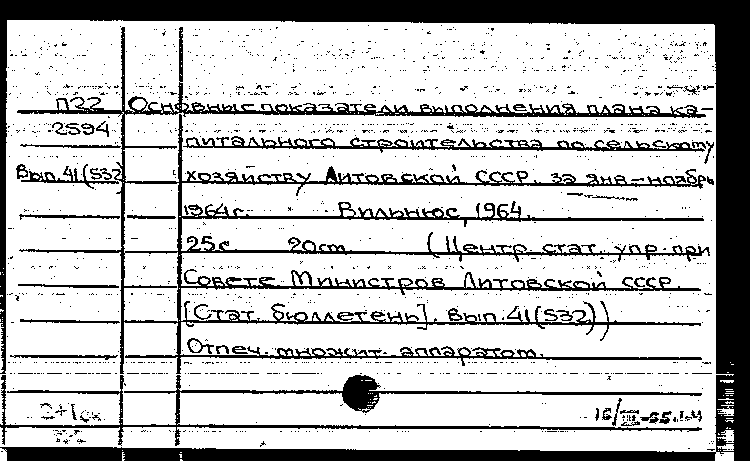 П22 Основные показатели выполнения плана ка-
2594 питального строительства по сельскому
Вып. 41(532) хозяйству Литовской ССР. за янв-ноябрь
1964г. Вильнюс, 1964.
25с. 20см (Центр. стат. упр. при
Совете Министров Литовской ССР.
[Стат. бюллетень]. Вып. 41(532))
Отпеч. множит. аппаратом.
2+1ок